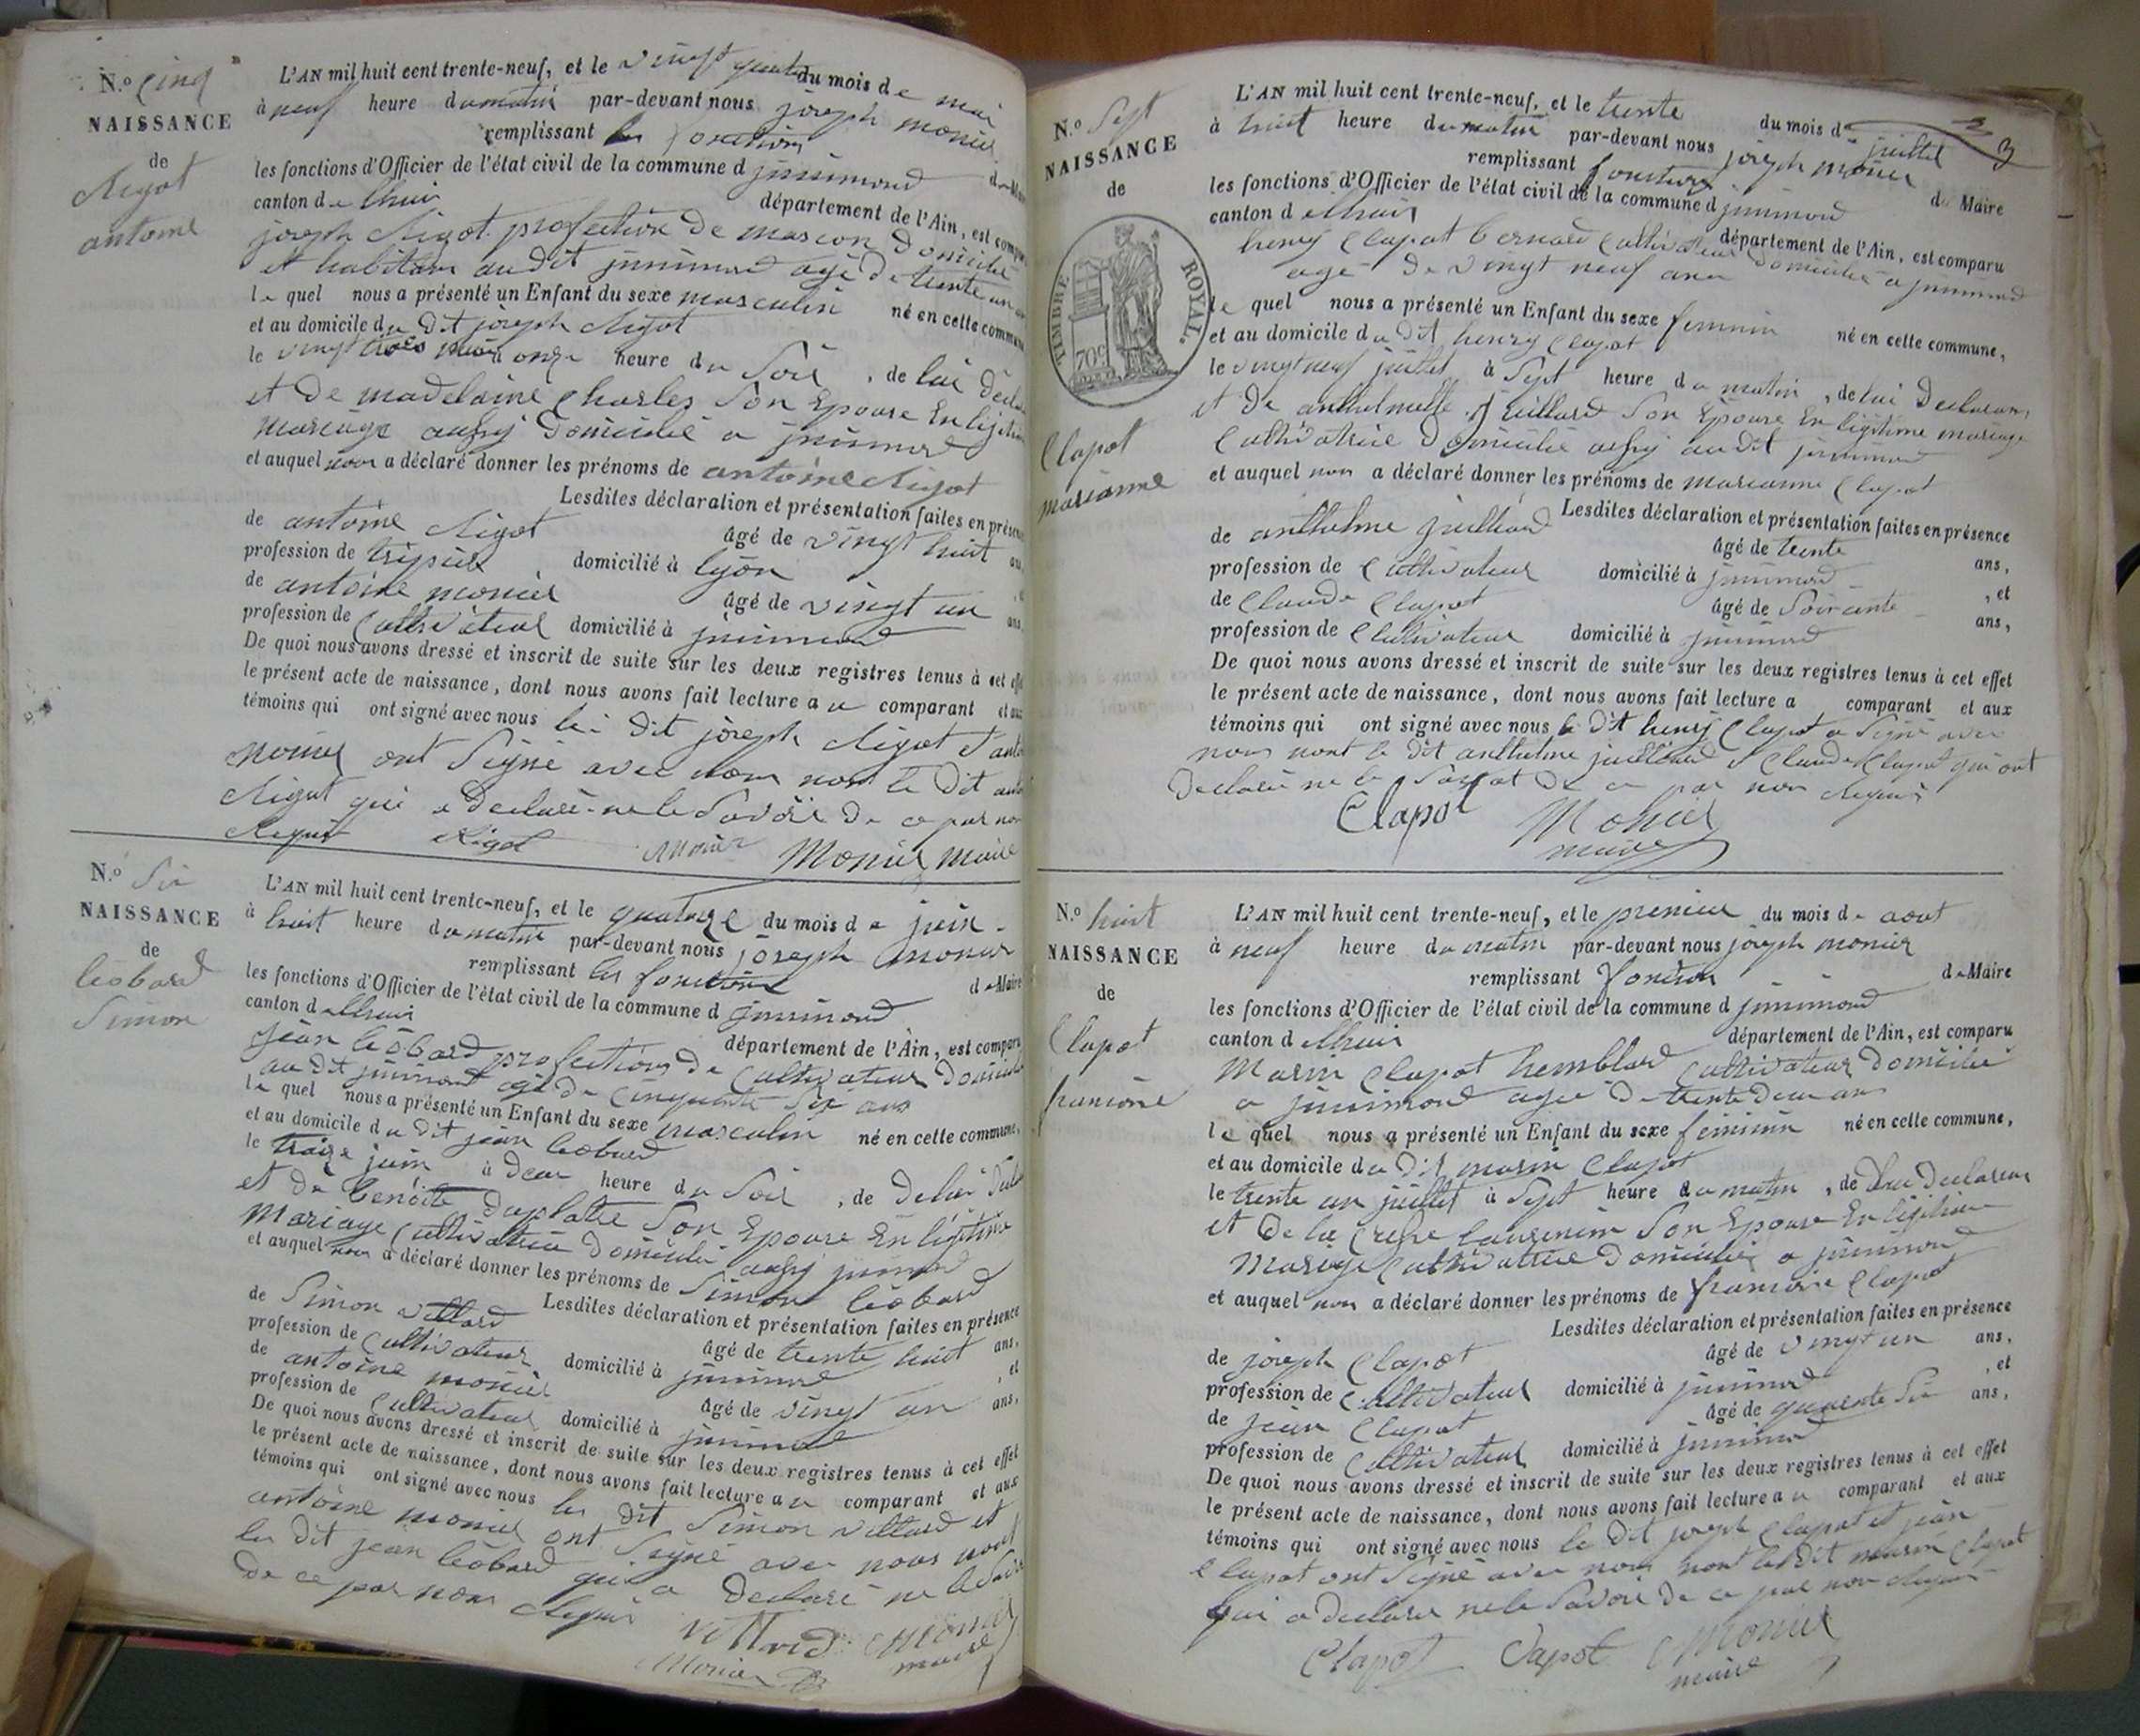 N.º cinq
NAISSANCE
de
Rigot
antoine
L'AN mil huit cent trente-neuf, et le vingt quatre du mois de mai
à neuf heure du matin par-devant nous joseph monier
remplissant les fonction du Maire
les fonctions d'Officier de l'état civil de la commune d jnnimond
canton de lhuis département de l'Ain, est comparu
joseph Rigot profection de mascon Domicilié
et habitan audit jnnimond agé de trente un
le quel nous a présenté un Enfant du sexe masculin né en cette commune
et au domicile du Dit joseph Rigot
le vingt trois mai à onze heure du Soir , de lui Décla
et De madelaine Charles Son Epouse En legiti
mariage aussy Domicilié a jnnimond
et auquel nous a déclaré donner les prénoms de antoine Rigot
Lesdites déclaration et présentation faites en présence
de antoine Rigot âgé de vingt huit ans
profession de tripier domicilié à lyon
de antoine monier âgé de vingt un ans
profession de Cultivateur domicilié à jnnimond
De quoi nous avons dressé et inscrit de suite sur les deux registres tenus à cet effet
le présent acte de naissance, dont nous avons fait lecture au comparant et aux
témoins qui ont signé avec nous le dit joseph Rigot et anto
monier ont Signé avec nous non le Dit anto
Rigot qui a Declaré ne le Savoir De ce par nou
Requis Rigot Monier Monier maire
N.º Six
NAISSANCE
de
léobard
Simon
L'AN mil huit cent trente-neuf, et le quatorze du mois de juin
à huit heure du matin par-devant nous joseph monier
remplissant les fonctions du Maire
les fonctions d'Officier de l'état civil de la commune d jnnimond
canton de lhuis département de l'Ain, est comparu
jean léobard profection de Cultivateur Domicilié
au dit jnnimond agé de Cinquante Six ans
le quel nous a présenté un Enfant du sexe masculin né en cette commune,
et au domicile du Dit jean léobard
le treize juin à deux heure du Soir , de De lui Decla
et De Benoîte Duplatre Son Epouse En légitime
Mariage Cultivatrice Domicilié aussy jnnimond
et auquel nous a déclaré donner les prénoms de Simon léobard
Lesdites déclaration et présentation faites en présence
de Simon villard âgé de trente huit ans,
profession de Cultivateur domicilié à jnnimond , et
de antoine monier âgé de vingt un ans,
profession de Cultivateur domicilié à jnnimond
De quoi nous avons dressé et inscrit de suite sur les deux registres tenus à cet effet
le présent acte de naissance, dont nous avons fait lecture au comparant et aux
témoins qui ont signé avec nous les dit Simon villard et
antoine monier ont Signé avec nous nont
le dit jean léobard qui a Declaré ne le Savoir
De ce par nous Requis
Villard Monier maire
Monier
3
N.º Sept
NAISSANCE
de
TIMBRE ROYAL.
70 c
Clapot
marianne
L'AN mil huit cent trente-neuf, et le trente du mois d juillet
à huit heure du matin par-devant nous joseph monier
remplissant fonctions du Maire
les fonctions d'Officier de l'état civil de la commune d jnnimond
canton d lhuis département de l'Ain, est comparu
henry Clapot bernard Cultivateur Domicilié a jnnimond
agé De vingt neuf ans
le quel nous a présenté un Enfant du sexe feminin né en cette commune,
et au domicile du Dit henry Clapot
le vingt neuf juillet à Sept heure du matin , de lui Declaran,
et De anthelmette juillard Son Epouse En légitime mariage
Cultivatrice Domicilié aussy audit jnnimond
et auquel nous a déclaré donner les prénoms de marianne Clapot
Lesdites déclaration et présentation faites en présence
de anthelme juillard âgé de trente ans,
profession de Cultivateur domicilié à jnnimond , et
de Claude Clapot âgé de Soixante ans,
profession de Cultivateur domicilié à jnnimond
De quoi nous avons dressé et inscrit de suite sur les deux registres tenus à cet effet
le présent acte de naissance, dont nous avons fait lecture a comparant et aux
témoins qui ont signé avec nous le Dit henry Clapot a Signé avec
nous nont le dit anthelme juillard et Claude Clapot qui ont
Declaré ne le De ce par nous Requis
Clapot Monier
maire
N.º huit
NAISSANCE
de
Clapot
francoise
L'AN mil huit cent trente-neuf, et le premier du mois de aout
à neuf heure du matin par-devant nous joseph monier
remplissant fonction du Maire
les fonctions d'Officier de l'état civil de la commune d jnnimond
canton d lhuis département de l'Ain, est comparu
Marin Clapot hemblard Cultivateur Domicilié
a jnnimond agée De trente deux ans
le quel nous a présenté un Enfant du sexe féminin né en cette commune,
et au domicile du Dit marin Clapot
le trente un juillet à Sept heure du matin , de lui Declaran
et De Son Epouse En légitime
Mariage Cultivatrice Domiciliée a jnnimond
et auquel nous a déclaré donner les prénoms de francoise Clapot
Lesdites déclaration et présentation faites en présence
de joseph Clapot âgé de vingt un ans,
profession de Cultivateur domicilié à jnnimond , et
de jean Clapot âgé de quarente Six ans,
profession de Cultivateur domicilié à jnnimond
De quoi nous avons dressé et inscrit de suite sur les deux registres tenus à cet effet
le présent acte de naissance, dont nous avons fait lecture au comparant et aux
témoins qui ont signé avec nous le Dit joseph Clapot et jean
Clapot ont Signé avec nous nont le Dit marin Clapot
qui a declaré ne le Savoir De ce par nou Requis
Clapot Clapot Monier
maire